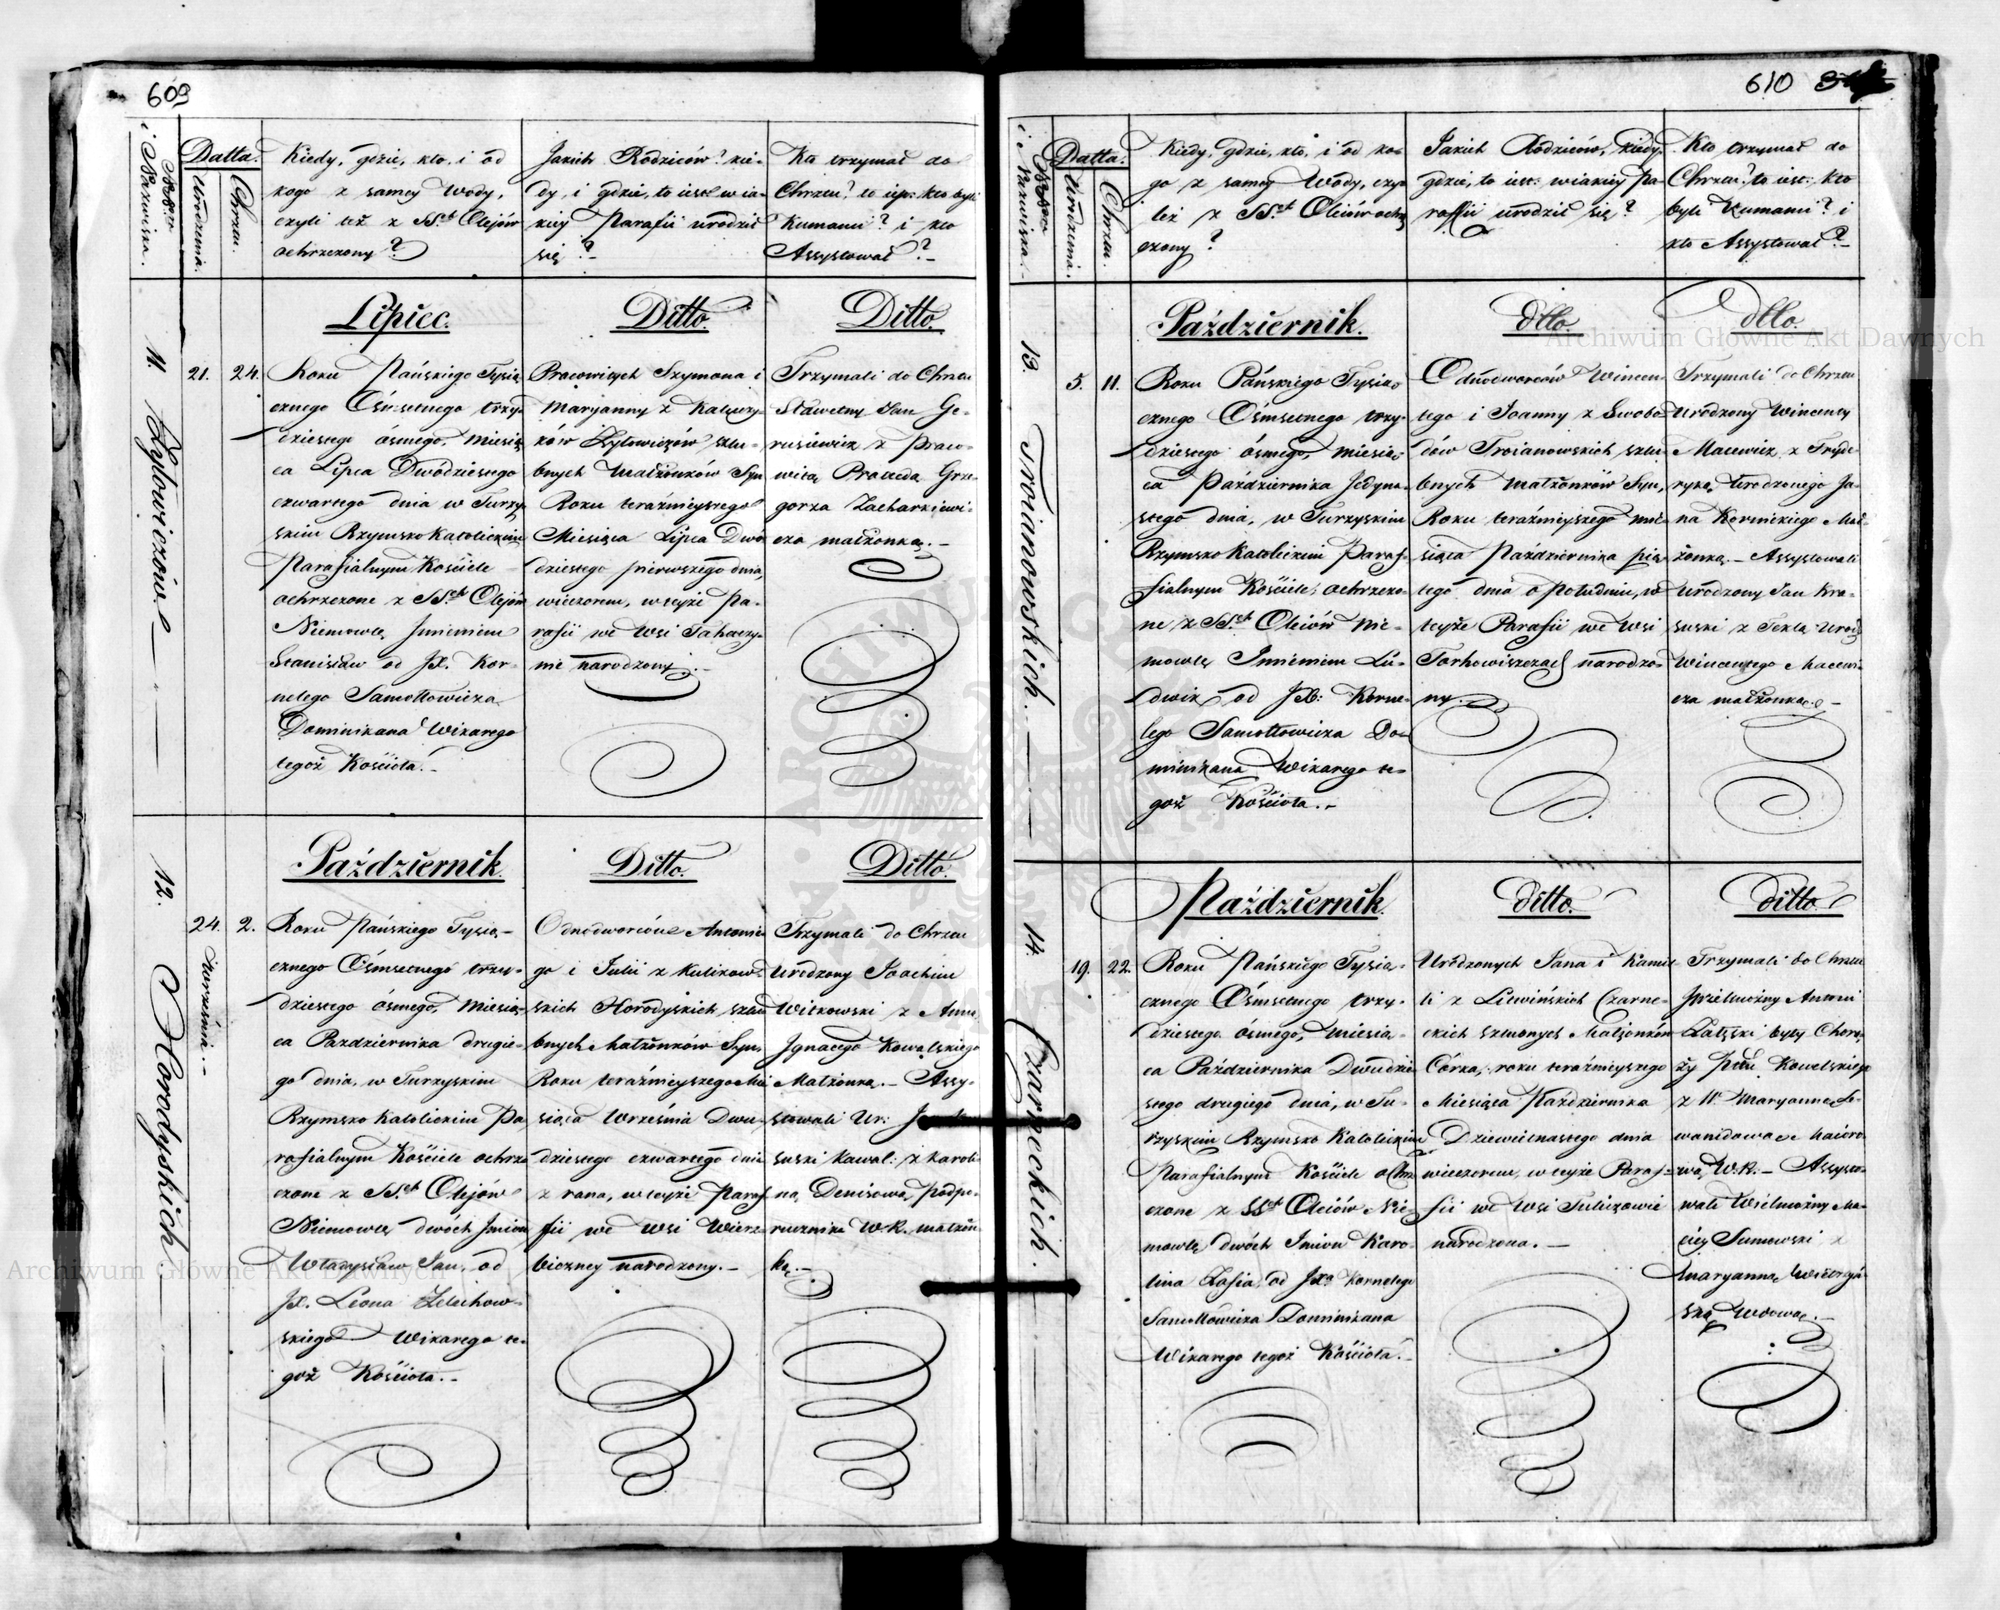 609
Numer i Nazwiska.
Datta.
Urodzenia.
Chrztu.
Kiedy, gdzie, kto, i od
kogo z samey Wody,
czyli też z SS.ch Olejów
ochrzczony?
Jakich Rodziców? kie-
dy, i gdzie, to iest w ia-
kiéy Parafii urodził
się?-
Kto trzymał do
Chrztu? to iest kto byli
Kumami? i kto
Assystował?-
11.
Lipiec.
Ditto.
Ditto.
21.
24.
Roku Pańskiego Tysią
cznego Ośmsetnego trzy-
dziestego ósmego, miesią
ca Lipca Dwódziestego
czwartego dnia w Turzy-
skim Rzymsko Katolickim
Parafialnym Kościele
ochrzczone z SS.ch Olejów
Niemowle Jmieniem
Stanisław od JX. Kor-
nelego Samottowicza
Dominikana Wikarego
tegoż Kościoła.-
Pracowitych Szymona i
Maryanny z
szlu-
bnych Małżonków Syn
Roku teraźnieyszego
Miesiąca Lipca Dwó
dziestego pierwszego dnia,
wieczorem, w teyże Pa-
rafii we Wsi
narodzony.-
Trzymali do Chrztu
Sławetny Jan Ge-
rusiewicz z Praco-
witą Praxedą Grze-
gorza Zacharkiewi-
cza małżonką.-
12.
Horodyskich
Październik.
Ditto.
Ditto.
24. Września.-
2.
Roku Pańskiego Tysią-
cznego Ośmsetnego trzy-
dziestego ósmego, Miesią-
ca Pazdziernika drugie-
go dnia, w Turzyskim
Rzymsko Katolickim Pa
rafialnym Kościele ochrz
czone z SS.ch Olejów
Niemowle dwóch Jmion
Władysław Jan, od
JX. Leona Zelechow-
skiego Wikarego te-
goż Kościoła.-
Odnodworców Antonie
go i Julii z Kulikow-
skich Horodyskich szlu
bnych Małżonków Syn
Roku teraźnieyszego Mie
siąca Września Dwu-
dziestego czwartego dnia
z rana, w teyże Paraf-
fii we Wsi Wierz-
biczney narodzony.-
Trzymali do Chrztu
Urodzony Joachim
Witkowski z Anną
Jgnacego Kowalskiego
Małżonką.- Assy-
stowali Ur:
Kawal: z Karoli
ną Denisową Podpo-
rucznika W.R. małżon
ką.-
610
Numer i Nazwiska.
Datta.
Urodzenia.
Chrztu.
Kiedy, gdzie, kto, i od ko-
go z samey Wody, czy
też z SS.ch Oleiów ochrz
czony?
Jakich Rodziców, kiedy
gdzie, to iest: w iakiéy Pa-
raffii urodził się?
Kto trzymał do
Chrztu? to iest: kto
byli Kumami? i
kto Assystował?-
13.
Troianowskich.
Październik.
dtto.
dtto.
5.
11.
Roku Pańskiego Tysią
cznego Ośmsetnego trzy-
dziestego ósmego, miesią
ca Października Jedyna-
stego dnia, w Turzyskim
Rzymsko Katolickim Paraf-
fialnym Kościele, ochrzczo-
ne z SS.ch Oleiów Nie-
mowle Jmieniem Lu-
dwik od JX: Korne-
lego Samottowicza Do-
minikana Wikarego te-
goż Kościoła.-
Odnodworców Wincen
tego i Joanny z Swobo
dów Troianowskich szlu-
bnych małżonków Syn,
Roku teraźnieyszego mie-
siąca Października pią-
tego dnia o południu, w
teyże Parafii we wsi
Torhowiszczach narodzo-
ny.-
Trzymali do Chrztu
Urodzony Wincenty
Macewicz z Fryde-
ryką Urodzonego Ja-
na Mał-
żonką.- Assystowali
Urodzony Jan Kra-
suski z Teklą Urodz
Wincentego Macewi-
cza małżonką.-
14.
Czarneckich.
Październik.
ditto.
ditto.
19.
22.
Roku Pańskiego Tysią-
cznego Ośmsetnego trzy-
dziestego ósmego, miesią-
ca Października Dwudzie-
stego drugiego dnia, w Tu-
rzyskim Rzymsko Katolickim
Parafialnym Kościele ochrz
czone z SS.ch Oleiów Nie
mowle dwóch Jmion Karo-
lina Zofia, od JX. Kornelego
Samottowicza Dominikana
Wikarego tegoż Kościoła.-
Urodzonych Jana i Kamil
li z Litwińskich Czarne-
ckich szlubnych Małżonków
Córka, roku teraźnieyszego
Miesiąca Października
Dziewietnastego dnia
wieczorem, w teyże Paraf-
fii we Wsi Tuliczowie
narodzona.-
Trzymali do Chrztu
JWielmożny Antoni
były Chorą
ży Ptu Kowelskiego
z W. Maryanną
Maioro-
wą W.R.- Assysto-
wali Wielmożny Ma-
ciey z
Maryanną
Wdową.-
Archiwum Główne Akt Dawnych
Archiwum Główne Akt Dawnych